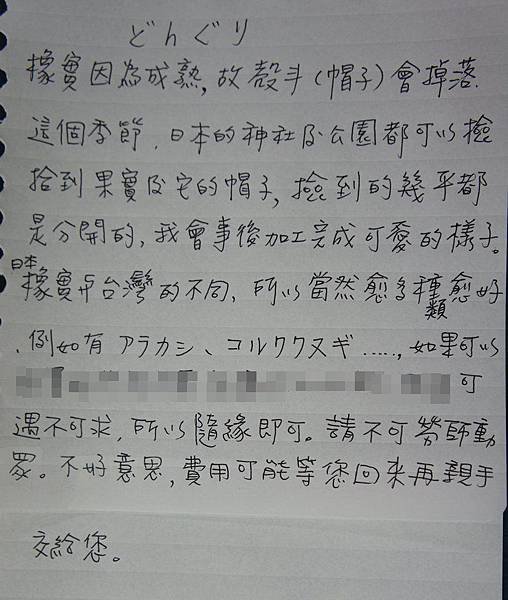 どんぐり
橡實因為成熟,故殼斗(帽子)會掉落.
這個季節,日本的神社及公園都可以撿
拾到果實及它的帽子,撿到的幾乎都
是分開的,我會事後加工完成可愛的樣子。
日本
橡實与台灣的不同,所以當然愈多種類愈好
、例如有アラカシ、コルククヌギ……,如果可以
可
遇不可求,所以隨緣即可。請不可勞師動
眾。不好意思,費用可能等您回來再親手
交給您。